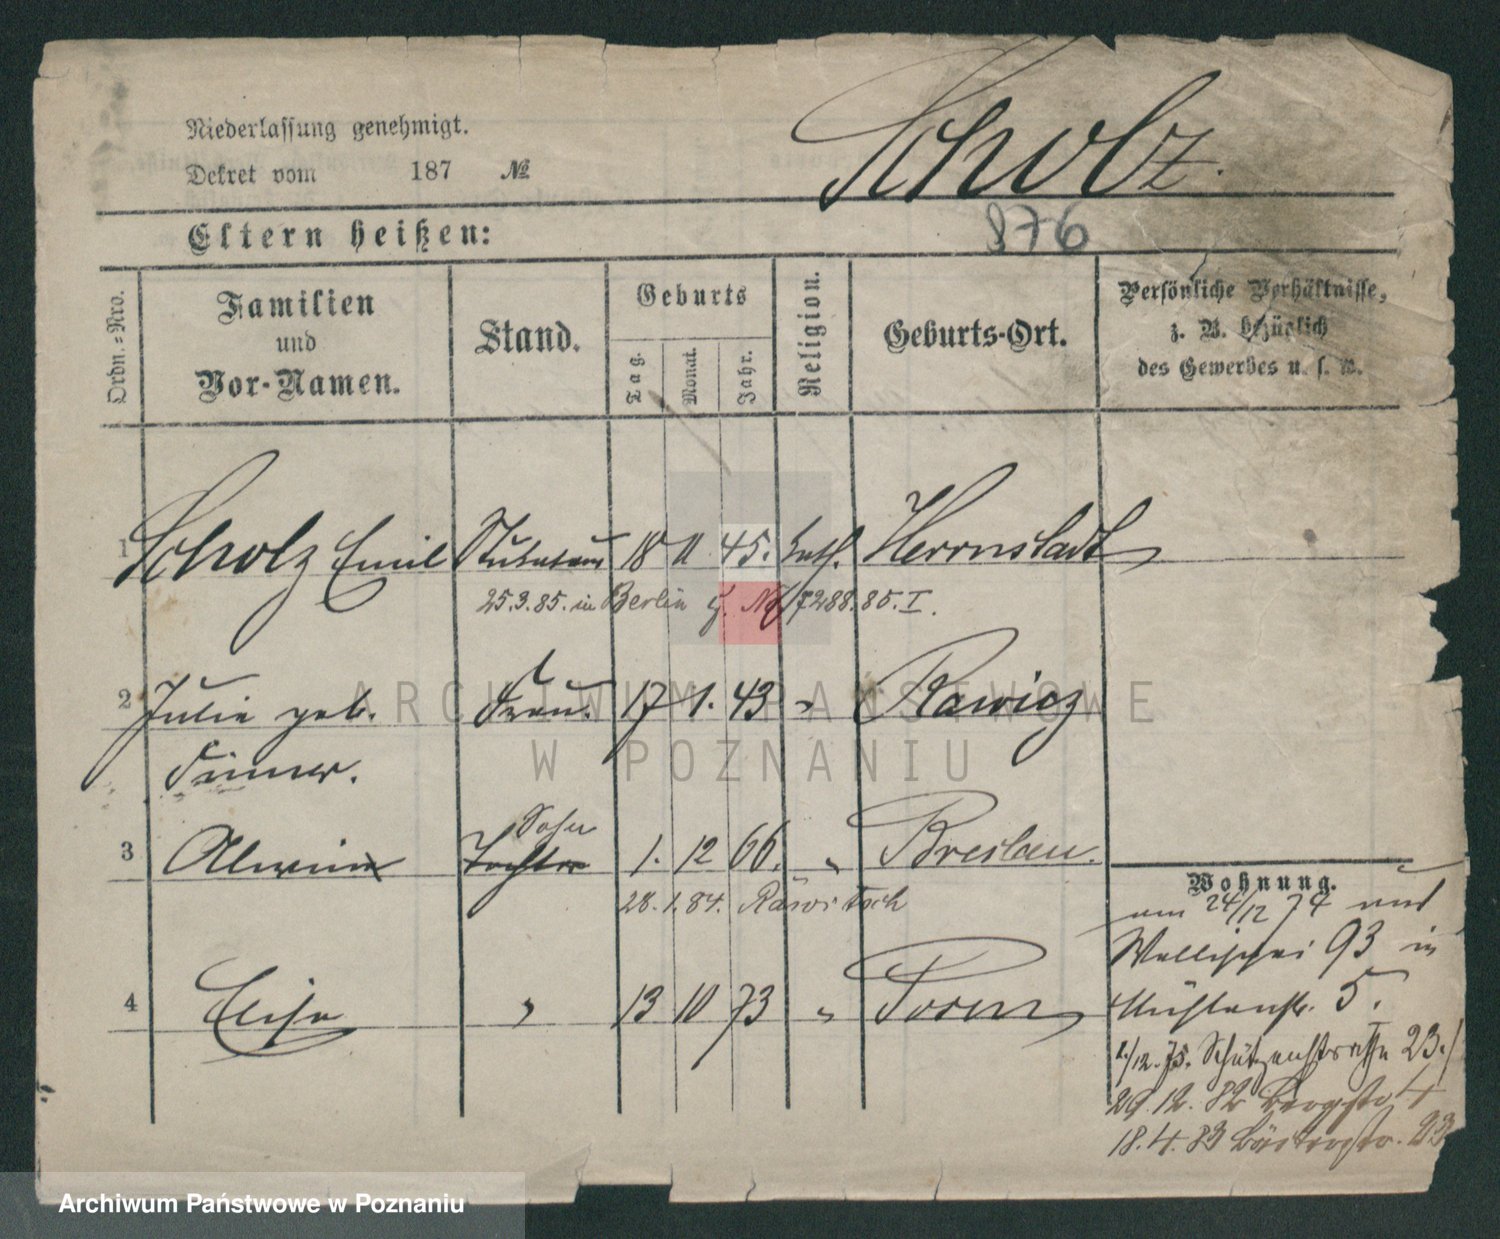 Niederlassung genehmigt.
Dekret vom 187 №
Scholz.
876
Eltern heißen:
Ordn.=Nro.
Familien
und
Vor-Namen.
Stand.
Geburts
Tag.
Monat.
Jahr.
Religion.
Geburts-Ort.
Persönliche Verhältnisse,
z. B. bezüglich
des Gewerbes u. s. w.
1 Scholz Emil 18 11 45. kath. Herrnstadt
25.3.85. in Berlin 7288.85.I.
2 Julie geb. Frau. 17 1. 43 " Rawicz
3 Alwin Sohn Tochter 1. 12 66. " Breslau.
28.1.84. Rawitsch
4 Elise " 13 10 73 " Posen
Wohnung.
am 24/12 74 von
Wallischei 93 in
Mühlenstr. 5.
1./12.75. Schützenstraße 23./
29.12.82 Bergstr 4
18.4.83 23
ARCHIWUM PAŃSTWOWE
W POZNANIU
Archiwum Państwowe w Poznaniu